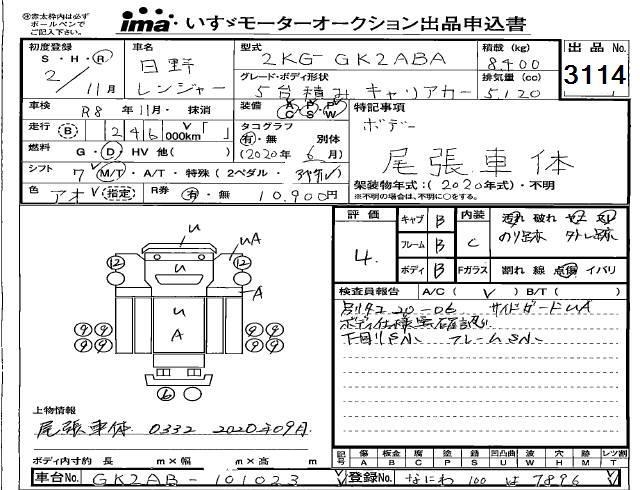 ※赤太枠内は必ず
ボールペンで
ご記入下さい。
ima いすゞモーターオークション出品申込書
初度登録 S・H・R 2/11月
車名 日野 レンジャー
型式 2KG-GK2ABA
積載 (kg) 8,400
出品No. 3114
グレード・ボディ形状 5台積み キャリアカー
排気量 (cc) 5,120
車検 R8年11月・抹消
装備 A/C P/S P/W
特記事項
ボデー
尾張車体
走行 B 246,000km
タコグラフ 有・無 別体
(2020年6月)
燃料 G・D HV 他( )
架装物年式:(2020年式)・不明
※不明の場合は、年式不明に○をする。
シフト 7 M/T・A/T・特殊(2ペダル・
色 アオ (指定) R券 有・無 10,900円
評価 4
キャブ B
フレーム B
ボディ B
内装 C
汚れ 破れ
のり跡 外トレ跡
Fガラス 割れ 線 点傷 イバリ
検査員報告 A/C( ✓ ) B/T( )
別タコ20-06 サイドガードUA
下回りS小 フレームS小
U
U A
12 12
U
A
U
A
9 9 9 9
9 9 9 9
6
上物情報
尾張車体 0332 2020年09月
ボディ内寸約 長 m×幅 m×高 m
記号 傷 A 板金 B 腐 C 塗 P 錆 S 凹凸曲 U 波 W 穴 H 跡 M レツ割 T
車台No. GK2AB-101023
登録No. なにわ 100 は 7896